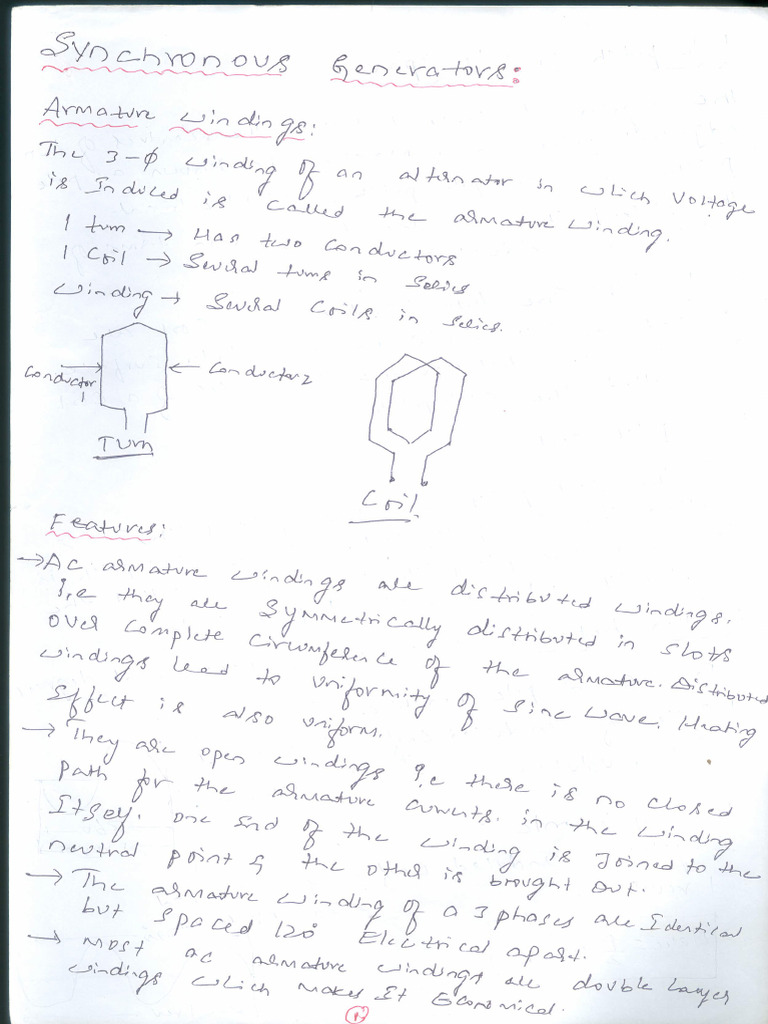 Synchronous Generators:
Armature windings:
The 3-φ winding of an alternator in which voltage
is Induced is called the armature winding.
1 turn → Has two conductors
1 Coil → Several turns in series
Winding → Several Coils in series.
Conductor 1
← Conductor 2
Turn
Coil
Features:
→ Ac armature windings are distributed windings.
i.e they are symmetrically distributed in slots
over complete circumference of the armature. Distributed
windings lead to uniformity of sine wave. Heating
effect is also uniform.
→ They are open windings i.e there is no closed
path for the armature currents in the winding
itself. one end of the winding is joined to the
neutral point & the other is brought out.
→ The armature winding of a 3 phases are Identical
but spaced 120° Electrical apart.
→ most ac armature windings are double layer
windings which makes It Economical.